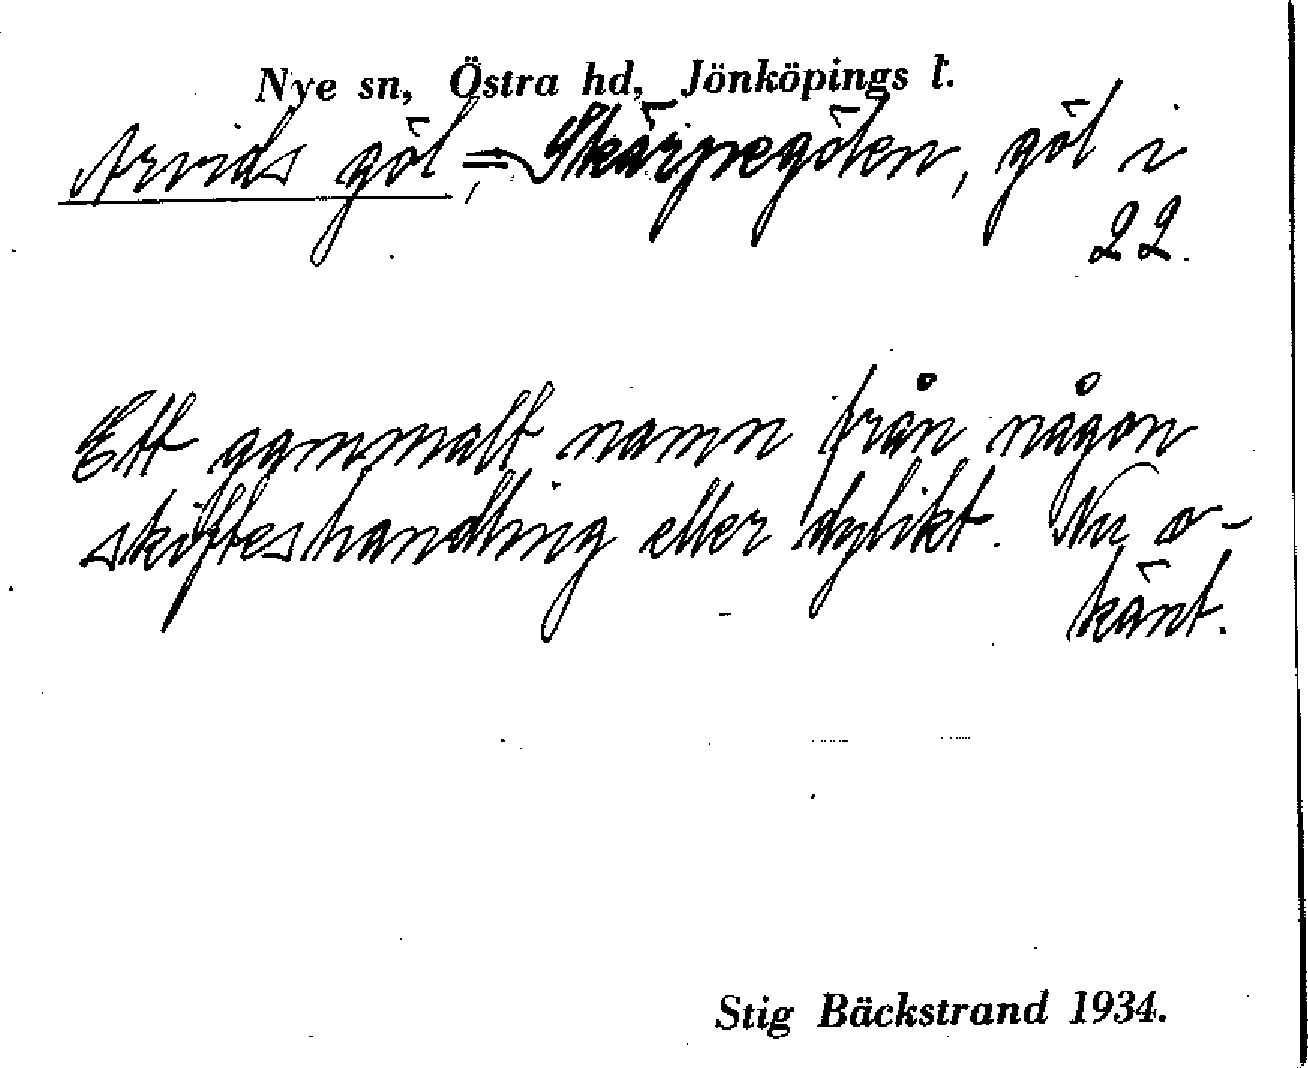 Nye sn, Östra hd, Jönköpings l.
Arvids göl, = Skärpegölen, göl i
22.
Ett gammalt namn från någon
skifteshandling eller dylikt. Nu o-
känt.
Stig Bäckstrand 1934.